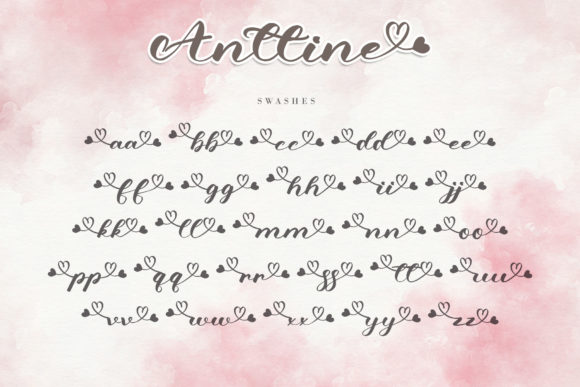 Anttine
SWASHES
aa bb cc dd ee
ff gg hh ii jj
kk ll mm nn oo
pp qq rr ss tt uu
vv ww xx yy zz